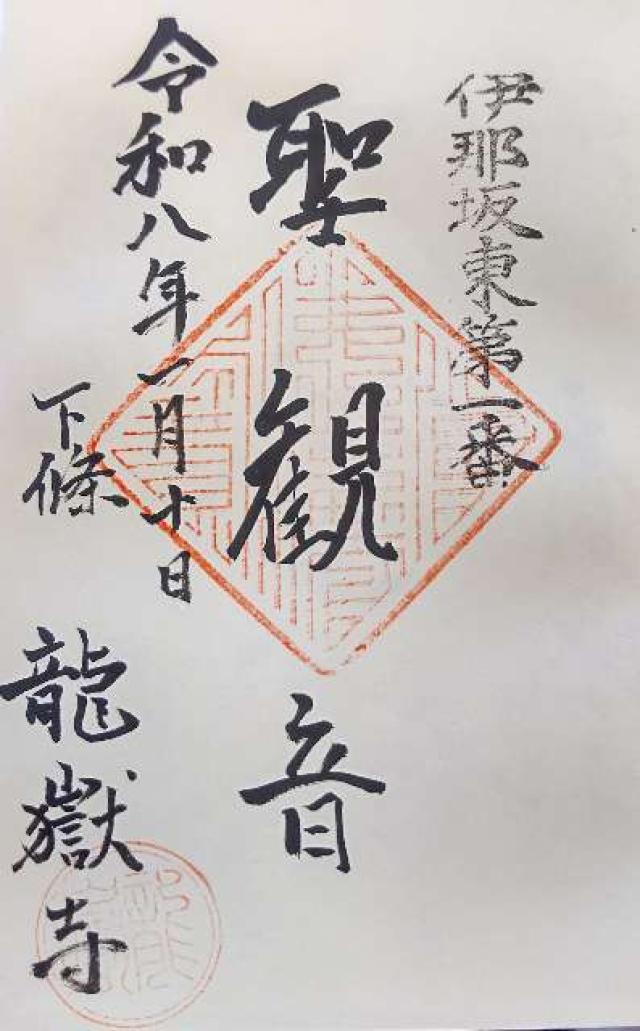 伊那坂東第一番
聖觀音
令和八年一月十日
下條
龍嶽寺